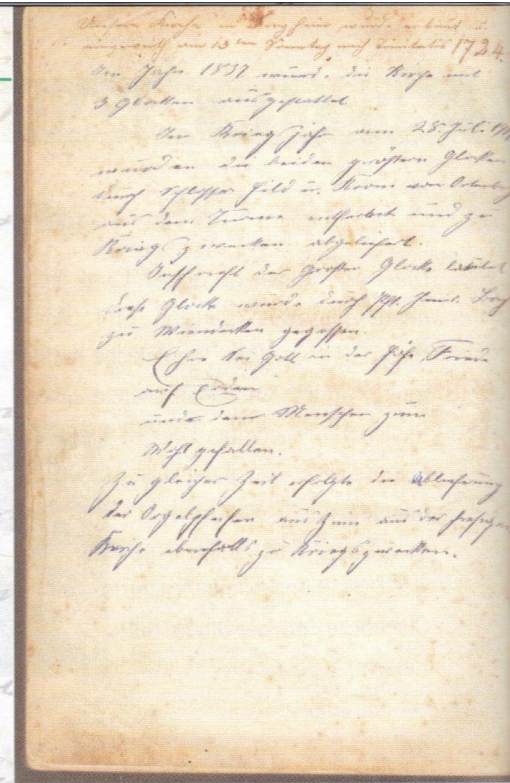 Unsere Kirche in Bergheim wurde erbaut u.
eingeweiht am 13ten Sonntag nach Trinitatis 1734.
Im Jahr 1837 wurde die Kirche mit
3 Glocken ausgestattet
Im Kriegsjahr am 28. Juli
wurden die beiden größern Glocken
durch Schlosser Hild u. von
aus dem Turme entfernt und zu
Kriegszwecken abgeliefert.
Inschrift der großen Glocke lautet
diese Glocke wurde durch
zu gegossen.
Ehre sei Gott in der Höhe, Friede
auf Erden
und den Menschen zum
Wohlgefallen.
Zu gleicher Zeit erfolgte die Ablieferung
der Orgelpfeifen aus Zinn aus der hiesigen
Kirche ebenfalls zu Kriegszwecken.